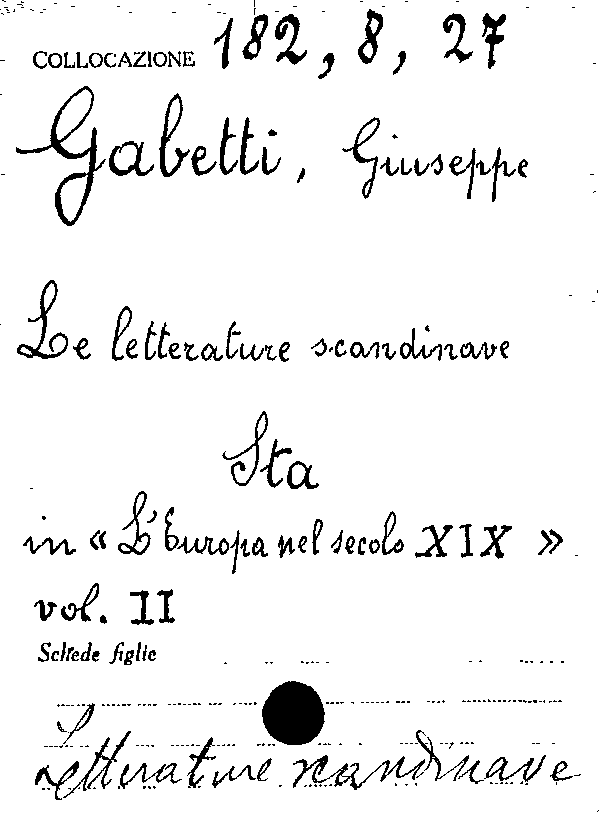 COLLOCAZIONE 182, 8, 27
Gabetti, Giuseppe
Le letterature scandinave
Sta
in « L'Europa nel secolo XIX »
vol. II
Schede figlie
Letterature scandinave